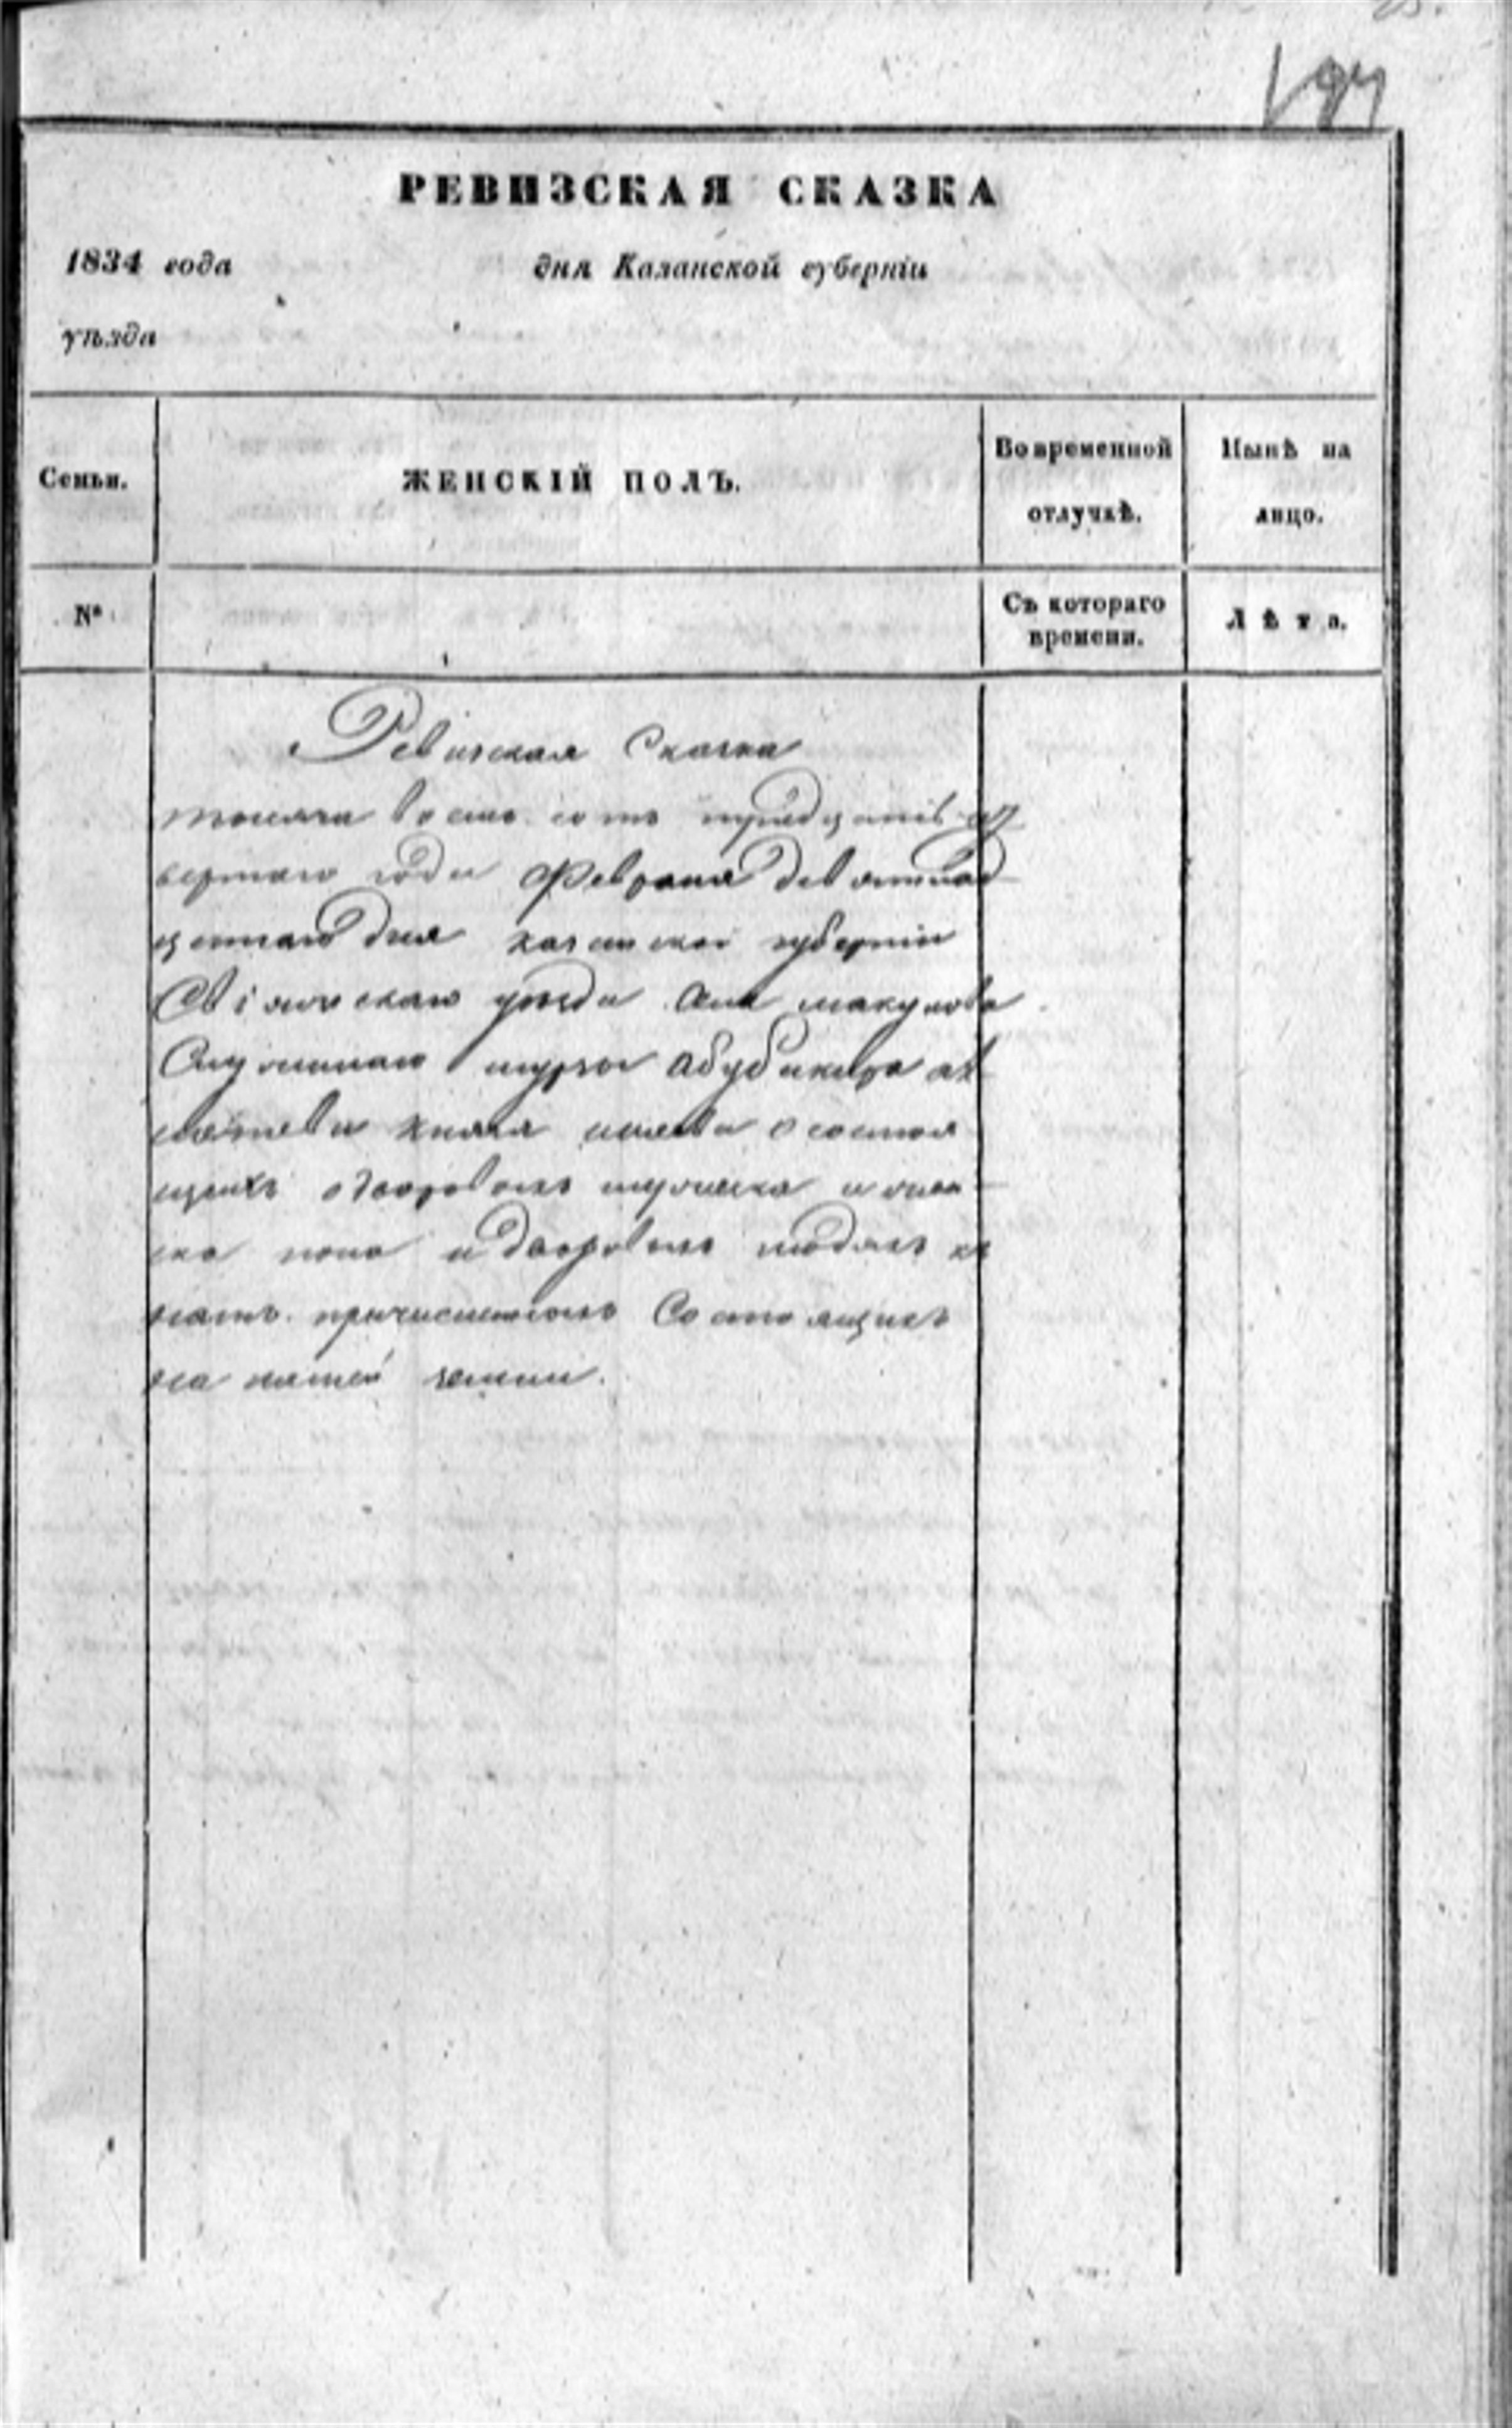 197
РЕВИЗСКАЯ СКАЗКА
1834 года дня Казанской губернiи
уѣзда
Семьи. ЖЕНСКIЙ ПОЛЪ. Во временной отлучкѣ. Нынѣ на лицо.
№ Съ котораго времени. Лѣта.
Ревизская Сказка
тысяча восемь сотъ тридцать чет
вертаго года Февраля девятнад
цатаго дня казанской губернiи
Свiяжскаго уезда села макулова
Служилаго мурзы абубикира
князя о состоя
щихъ одворовыхъ мужеска и жен
ска пола идворовыхъ людяхъ къ
намъ причисленыхъ Состоящихъ
на нашей земли.